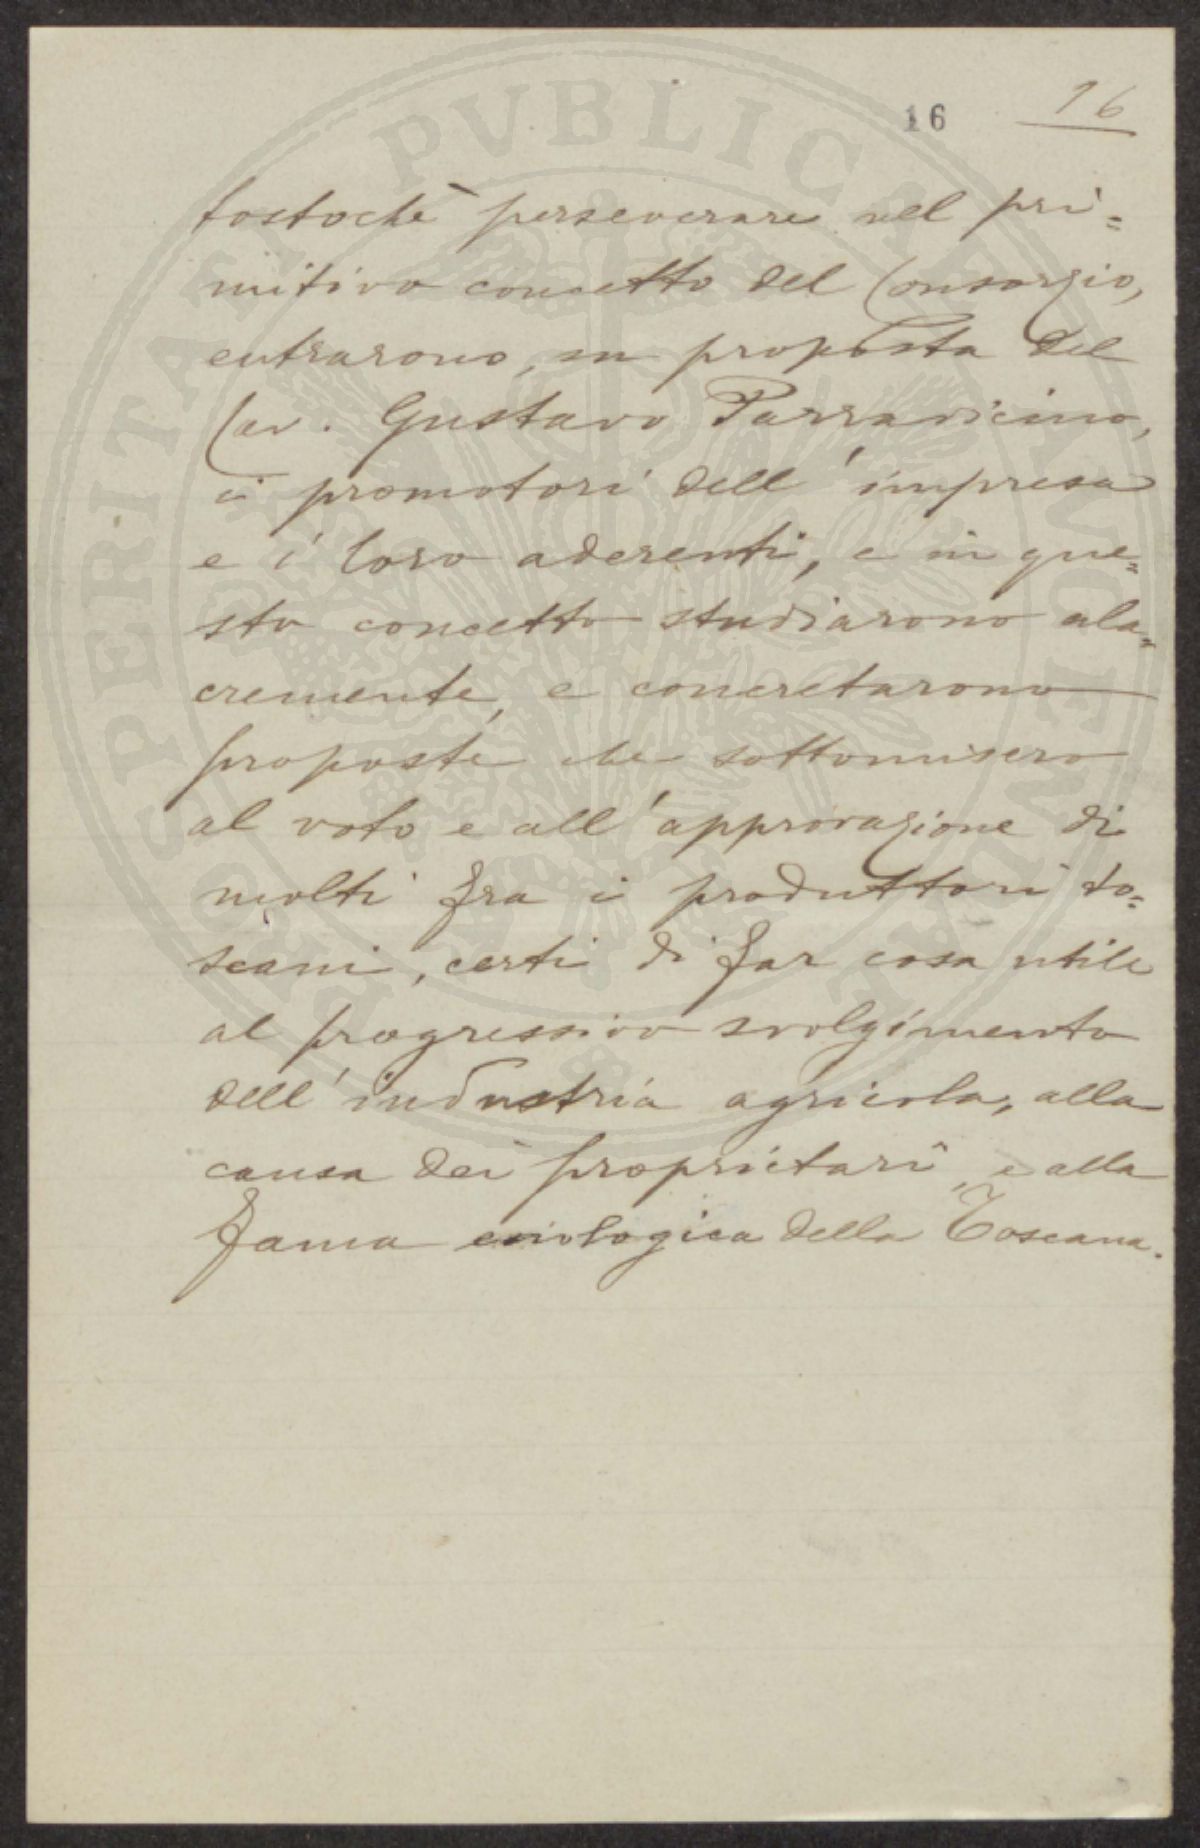 16 16
tostochè perseverare nel pri=
mitivo concetto del Consorzio,
entrarono, su proposta del
Cav. Gustavo Parravicino,
i promotori dell'impresa
e i loro aderenti, e in que=
sto concetto studiarono ala=
cremente, e concretarono
proposte che sottomisero
al voto e all'approvazione di
molti fra i produttori to=
scani, certi di far cosa utile
al progressivo svolgimento
dell'industria agricola, alla
causa dei proprietari, e alla
fama enologica della Toscana.
PROSPERITATI PVBLICAE AVGENDAE